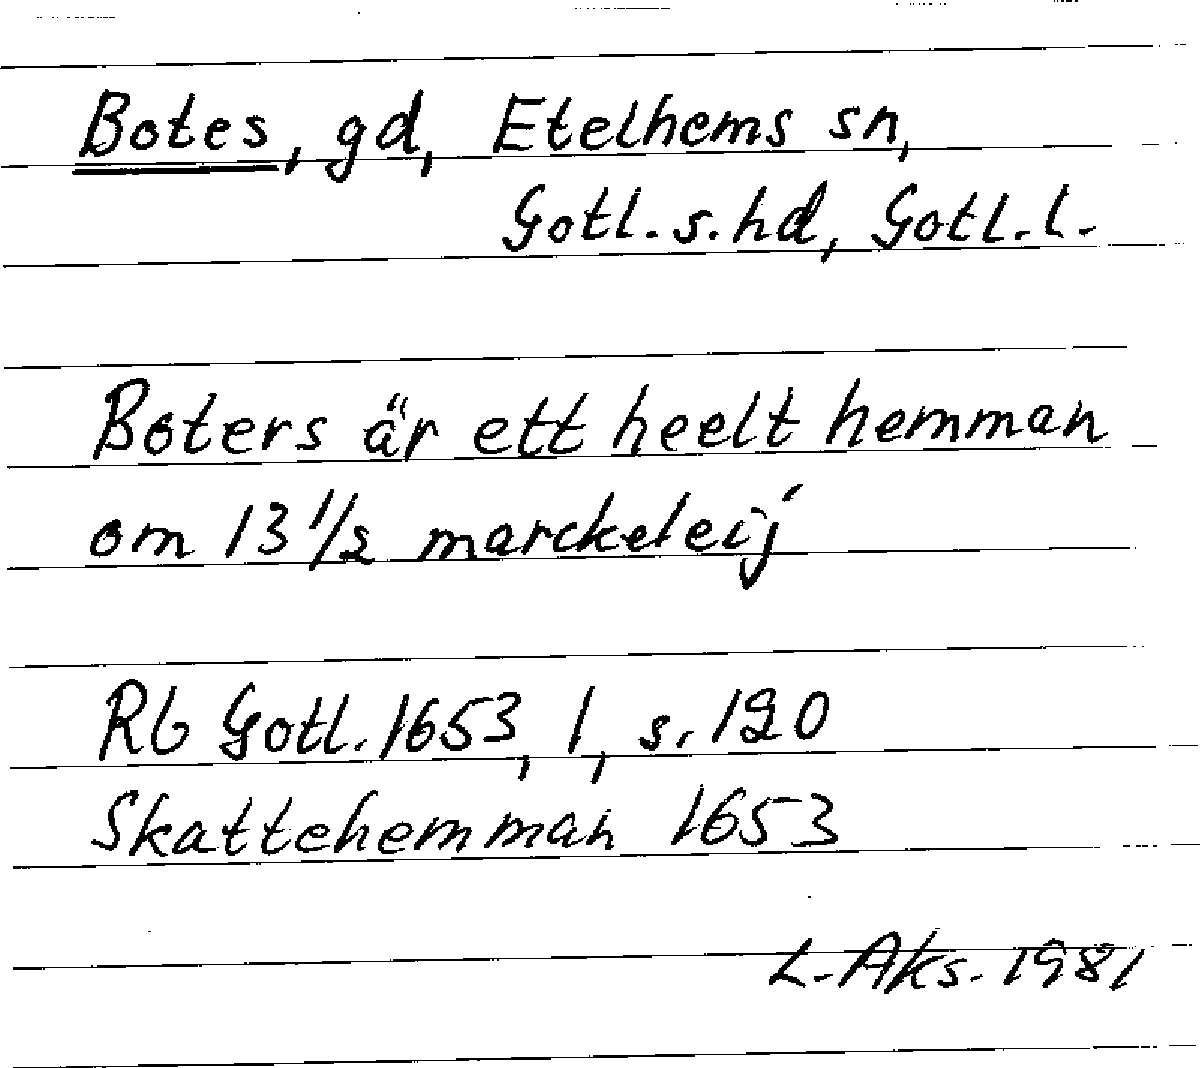 Botes, gd, Etelhems sn,
Gotl. s. hd, Gotl. l.
Boters är ett heelt hemman
om 13 1/2 marckeleij
Rb Gotl. 1653, 1, s. 120
Skattehemman 1653
L. Aks. 1981